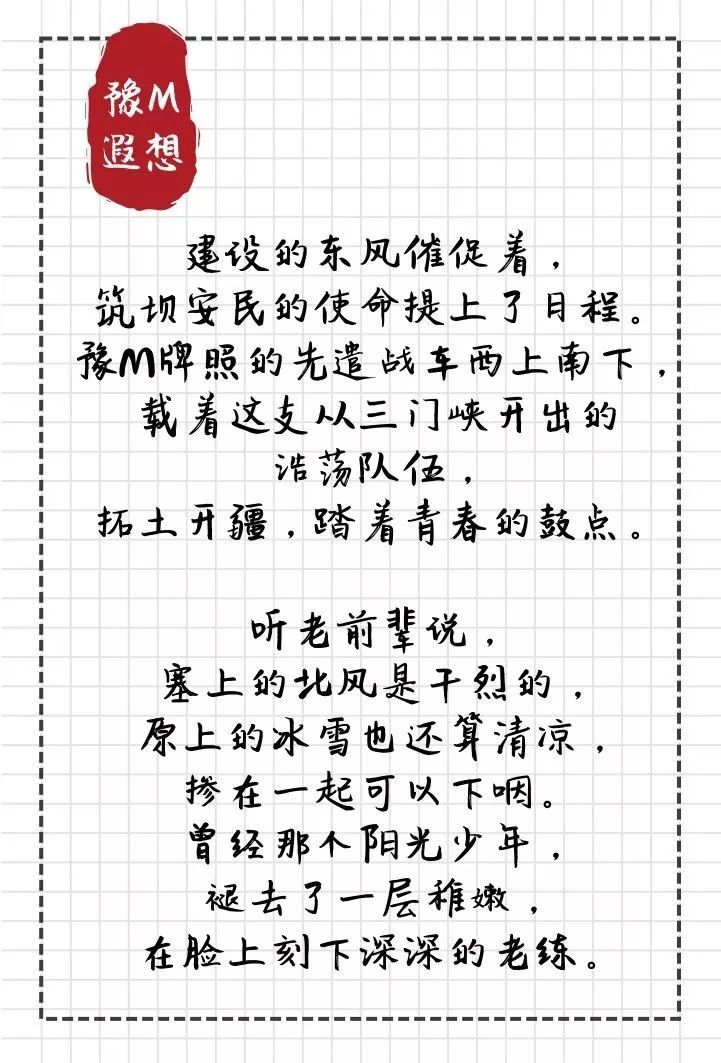 豫M
遐想
建设的东风催促着，
筑坝安民的使命提上了日程。
豫M牌照的先遣战车西上南下，
载着这支从三门峡开出的
浩荡队伍，
拓土开疆，踏着青春的鼓点。
听老前辈说，
塞上的北风是干烈的，
原上的冰雪也还算清凉，
掺在一起可以下咽。
曾经那个阳光少年，
褪去了一层稚嫩，
在脸上刻下深深的老练。